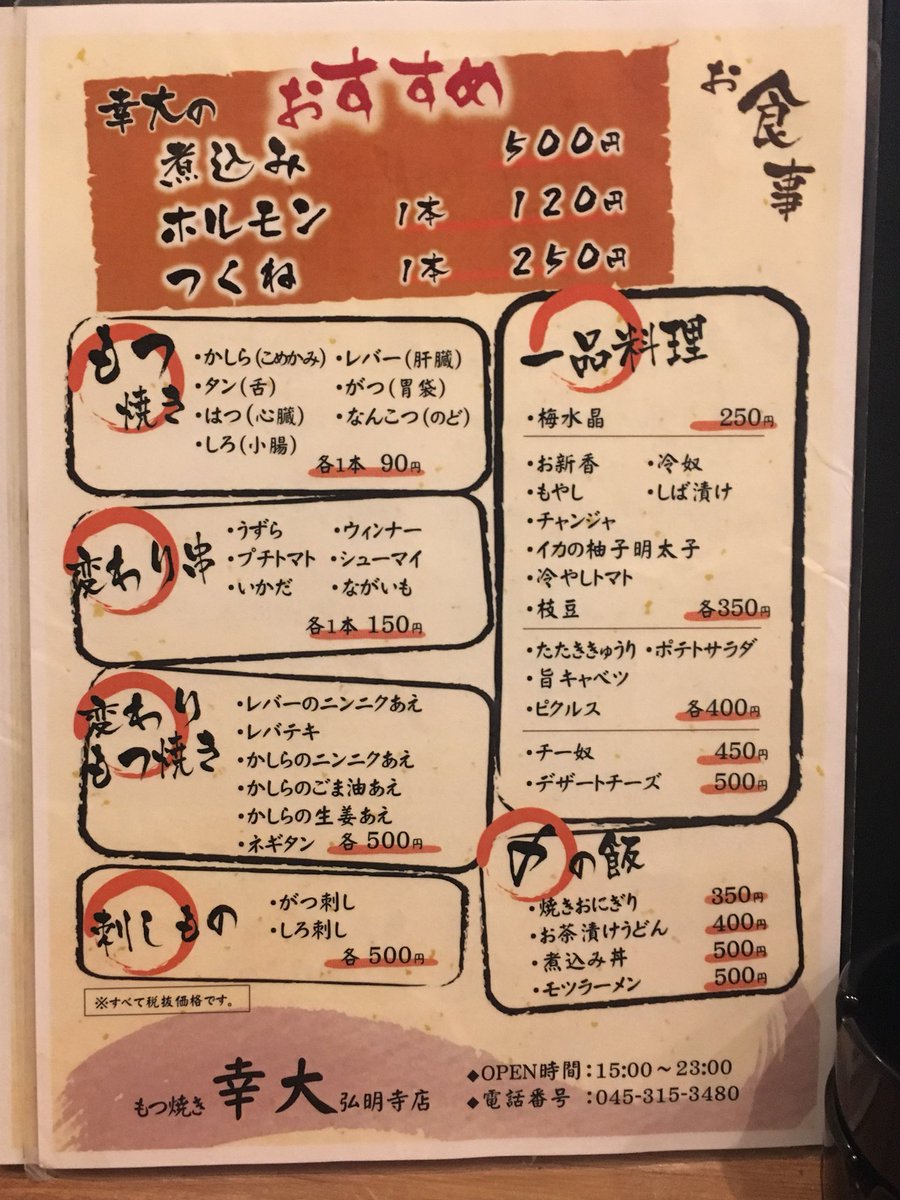 お食事
幸大の おすすめ
煮込み 500円
ホルモン 1本 120円
つくね 1本 250円
もつ焼き
・かしら(こめかみ) ・レバー(肝臓)
・タン(舌) ・がつ(胃袋)
・はつ(心臓) ・なんこつ(のど)
・しろ(小腸)
各1本 90円
変わり串
・うずら ・ウィンナー
・プチトマト ・シューマイ
・いかだ ・ながいも
各1本 150円
変わり
もつ焼き
・レバーのニンニクあえ
・レバテキ
・かしらのニンニクあえ
・かしらのごま油あえ
・かしらの生姜あえ
・ネギタン 各500円
刺しもの
・がつ刺し
・しろ刺し
各500円
一品料理
・梅水晶 250円
・お新香 ・冷奴
・もやし ・しば漬け
・チャンジャ
・イカの柚子明太子
・冷やしトマト
・枝豆 各350円
・たたききゅうり ・ポテトサラダ
・旨キャベツ
・ピクルス 各400円
・チー奴 450円
・デザートチーズ 500円
〆の飯
・焼きおにぎり 350円
・お茶漬けうどん 400円
・煮込み丼 500円
・モツラーメン 500円
※すべて税抜価格です。
もつ焼き 幸大 弘明寺店
◆OPEN時間：15:00～23:00
◆電話番号 ：045-315-3480